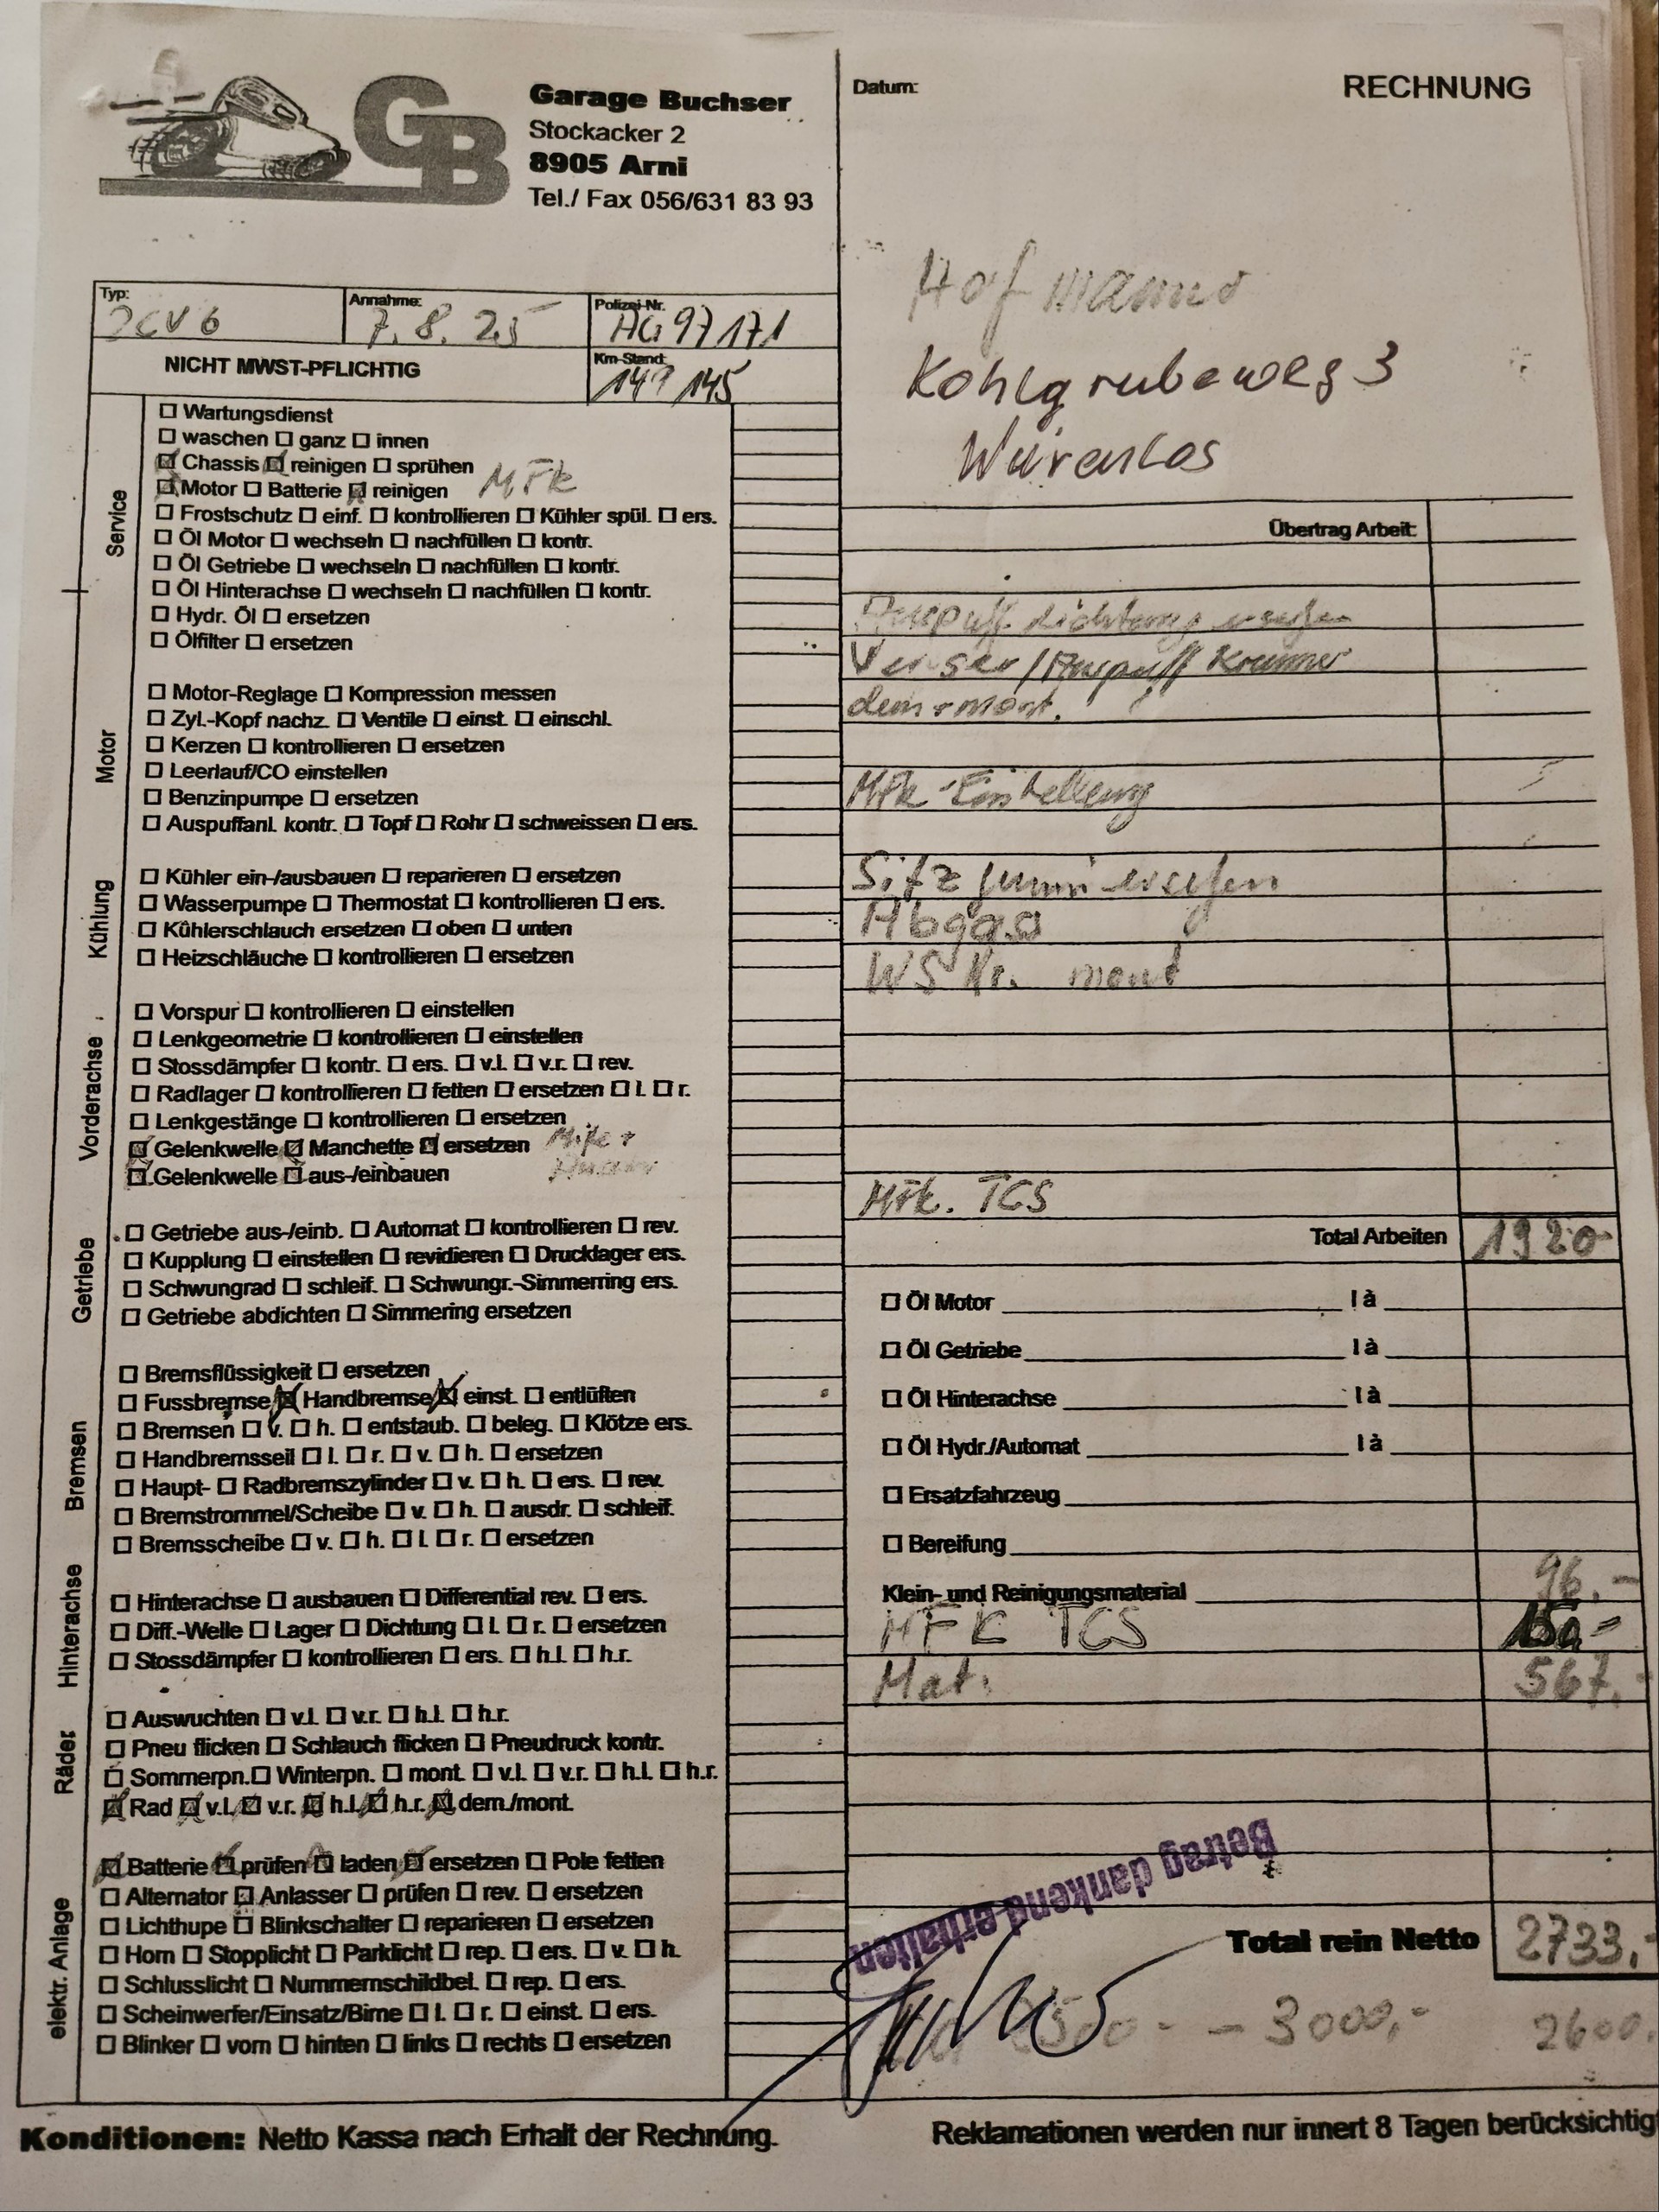 GB
Garage Buchser
Stockacker 2
8905 Arni
Tel./ Fax 056/631 83 93
Datum:
RECHNUNG
Hofmann
Kohlgrubeweg 3
Würenlos
Typ: 2CV6
Annahme: 7.8.25
Polizei-Nr. AG 97171
NICHT MWST-PFLICHTIG
Km-Stand: 145
Service
☐ Wartungsdienst
☐ waschen ☐ ganz ☐ innen
☒ Chassis ☒ reinigen ☐ sprühen MFK
☒ Motor ☐ Batterie ☒ reinigen
☐ Frostschutz ☐ einf. ☐ kontrollieren ☐ Kühler spül. ☐ ers.
☐ Öl Motor ☐ wechseln ☐ nachfüllen ☐ kontr.
☐ Öl Getriebe ☐ wechseln ☐ nachfüllen ☐ kontr.
☐ Öl Hinterachse ☐ wechseln ☐ nachfüllen ☐ kontr.
☐ Hydr. Öl ☐ ersetzen
☐ Ölfilter ☐ ersetzen
Motor
☐ Motor-Reglage ☐ Kompression messen
☐ Zyl.-Kopf nachz. ☐ Ventile ☐ einst. ☐ einschl.
☐ Kerzen ☐ kontrollieren ☐ ersetzen
☐ Leerlauf/CO einstellen
☐ Benzinpumpe ☐ ersetzen
☐ Auspuffanl. kontr. ☐ Topf ☐ Rohr ☐ schweissen ☐ ers.
Kühlung
☐ Kühler ein-/ausbauen ☐ reparieren ☐ ersetzen
☐ Wasserpumpe ☐ Thermostat ☐ kontrollieren ☐ ers.
☐ Kühlerschlauch ersetzen ☐ oben ☐ unten
☐ Heizschläuche ☐ kontrollieren ☐ ersetzen
Vorderachse
☐ Vorspur ☐ kontrollieren ☐ einstellen
☐ Lenkgeometrie ☐ kontrollieren ☐ einstellen
☐ Stossdämpfer ☐ kontr. ☐ ers. ☐ v.l. ☐ v.r. ☐ rev.
☐ Radlager ☐ kontrollieren ☐ fetten ☐ ersetzen ☐ l. ☐ r.
☐ Lenkgestänge ☐ kontrollieren ☐ ersetzen
☒ Gelenkwelle ☒ Manchette ☒ ersetzen
☒ Gelenkwelle ☐ aus-/einbauen
Getriebe
☐ Getriebe aus-/einb. ☐ Automat ☐ kontrollieren ☐ rev.
☐ Kupplung ☐ einstellen ☐ revidieren ☐ Drucklager ers.
☐ Schwungrad ☐ schleif. ☐ Schwungr.-Simmerring ers.
☐ Getriebe abdichten ☐ Simmering ersetzen
Bremsen
☐ Bremsflüssigkeit ☐ ersetzen
☐ Fussbremse ☒ Handbremse ☒ einst. ☐ entlüften
☐ Bremsen ☐ v. ☐ h. ☐ entstaub. ☐ beleg. ☐ Klötze ers.
☐ Handbremsseil ☐ l. ☐ r. ☐ v. ☐ h. ☐ ersetzen
☐ Haupt- ☐ Radbremszylinder ☐ v. ☐ h. ☐ ers. ☐ rev.
☐ Bremstrommel/Scheibe ☐ v. ☐ h. ☐ ausdr. ☐ schleif.
☐ Bremsscheibe ☐ v. ☐ h. ☐ l. ☐ r. ☐ ersetzen
Hinterachse
☐ Hinterachse ☐ ausbauen ☐ Differential rev. ☐ ers.
☐ Diff.-Welle ☐ Lager ☐ Dichtung ☐ l. ☐ r. ☐ ersetzen
☐ Stossdämpfer ☐ kontrollieren ☐ ers. ☐ h.l. ☐ h.r.
Räder
☐ Auswuchten ☐ v.l. ☐ v.r. ☐ h.l. ☐ h.r.
☐ Pneu flicken ☐ Schlauch flicken ☐ Pneudruck kontr.
☐ Sommerpn. ☐ Winterpn. ☐ mont. ☐ v.l. ☐ v.r. ☐ h.l. ☐ h.r.
☒ Rad ☒ v.l. ☒ v.r. ☒ h.l. ☒ h.r. ☒ dem./mont.
elektr. Anlage
☒ Batterie ☒ prüfen ☒ laden ☒ ersetzen ☐ Pole fetten
☐ Alternator ☐ Anlasser ☐ prüfen ☐ rev. ☐ ersetzen
☐ Lichthupe ☐ Blinkschalter ☐ reparieren ☐ ersetzen
☐ Horn ☐ Stopplicht ☐ Parklicht ☐ rep. ☐ ers. ☐ v. ☐ h.
☐ Schlusslicht ☐ Nummernschildbel. ☐ rep. ☐ ers.
☐ Scheinwerfer/Einsatz/Birne ☐ l. ☐ r. ☐ einst. ☐ ers.
☐ Blinker ☐ vorn ☐ hinten ☐ links ☐ rechts ☐ ersetzen
Übertrag Arbeit:
Auspuff dichtung ersetzen
/Auspuff Krümmer
dem + mont.
MFK-Einstellung
Sitzgummi ersetzen
Abgas
WS Nr. mont
MFK. TCS
Total Arbeiten 1920-
☐ Öl Motor l à
☐ Öl Getriebe l à
☐ Öl Hinterachse l à
☐ Öl Hydr./Automat l à
☐ Ersatzfahrzeug
☐ Bereifung
Klein- und Reinigungsmaterial 96.-
MFK TCS 150.-
Mat. 567.-
Betrag dankend erhalten
Total rein Netto 2733.-
2500.- - 3000.- 2600.
Konditionen: Netto Kassa nach Erhalt der Rechnung.
Reklamationen werden nur innert 8 Tagen berücksichtig